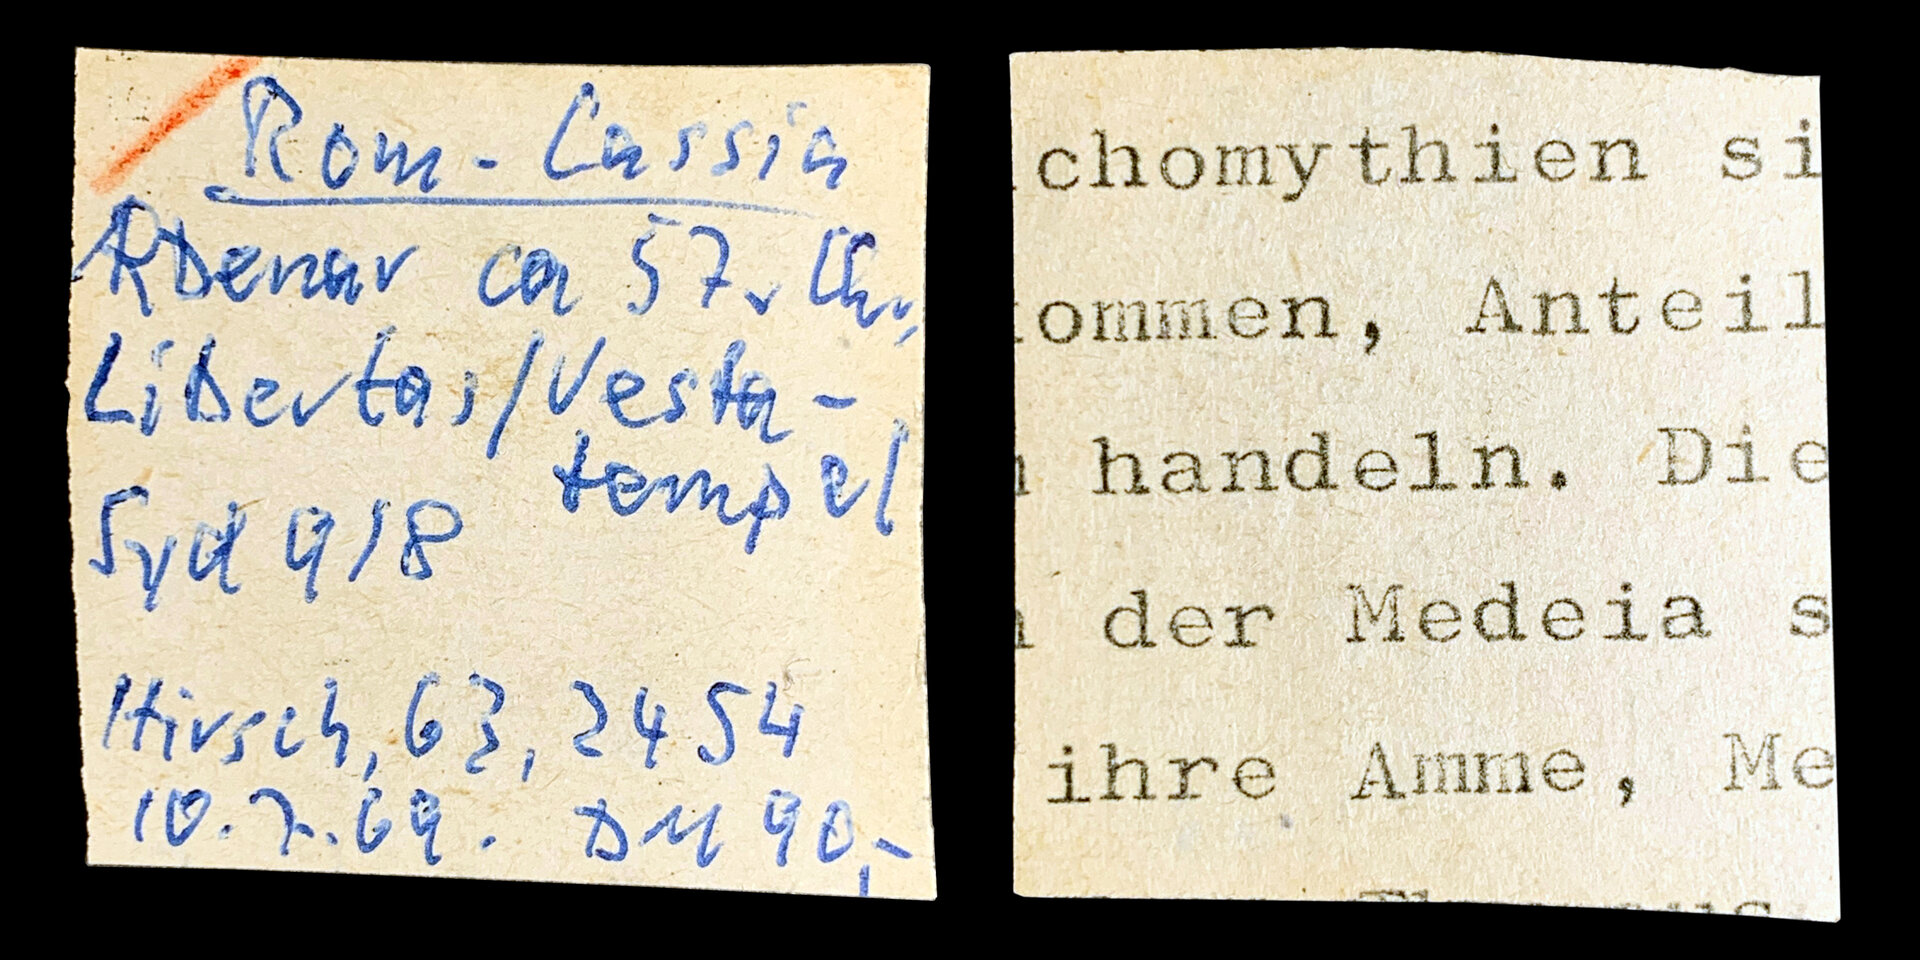 Rom - Cassia
RDenar ca 57 v. Chr,
Libertas/Vesta-
tempel
Syd 918
Hirsch, 63, 2454
10.7.69. DM 90,-
chomythien si
ommen, Anteil
handeln. Die
der Medeia s
ihre Amme, Me